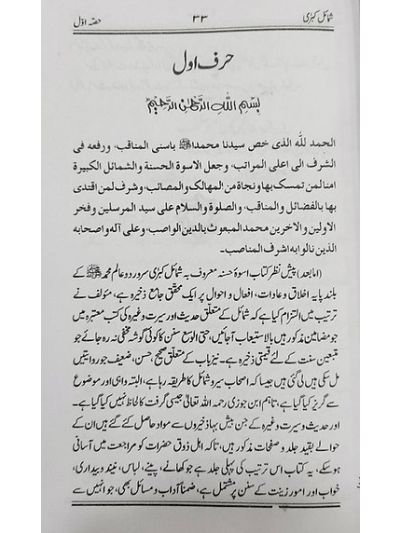 شمائل کبریٰ ۳۳ حصہ اوّل
حرف اول
بسم اللہ الرحمٰن الرحیم
الحمد للّٰہ الذی خص سیدنا محمداﷺ باسنی المناقب، ورفعہ فی
الشرف الی اعلی المراتب، وجعل الاسوۃ الحسنۃ والشمائل الکبیرۃ
امنالمن تمسک بھا ونجاۃ من المھالک والمصائب، وشرف لمن اقتدی
بھا بالفضائل والمناقب، والصلوۃ والسلام علی سید المرسلین وفخر
الاولین والاخرین محمد المبعوث بالدین الواصب، وعلی آلہ واصحابہ
الذین نالوا بہ اشرف المناصب۔
(اما بعد) پیش نظر کتاب اسوۂ حسنہ معروف بہ شمائل کبریٰ سرور دو عالم محمد ﷺ کے
بلند پایہ اخلاق و عادات، افعال و احوال پر ایک محقق جامع ذخیرہ ہے، مؤلف نے
ترتیب میں التزام کیا ہے کہ شمائل کے متعلق حدیث اور سیرت وغیرہ کی کتب معتبرہ میں
جو مضامین مذکور ہیں بالاستیعاب آجائیں، حتی الوسع سنن کا کوئی گوشہ مخفی نہ رہ جائے جو
متبعین سنت کے لئے قیمتی ذخیرہ ہے۔ نیز باب کے متعلق صحیح، حسن، ضعیف جو روایتیں
مل سکی ہیں لی گئی ہیں جیسا کہ اصحاب سیر و شمائل کا طریقہ رہا ہے، البتہ واہی اور موضوع
سے گریز کیا گیا ہے، تاہم ابن جوزی رحمہ اللہ تعالیٰ جیسی گرفت کا لحاظ نہیں کیا گیا ہے۔
اور حدیث و سیرت وغیرہ کے جن بیش بہا ذخیروں سے مواد حاصل کئے گئے ہیں ان کے
حوالے بقید جلد و صفحات مذکور ہیں، تاکہ اہل ذوق حضرات کو مراجعت میں آسانی
ہوسکے، یہ کتاب اس ترتیب کی پہلی جلد ہے جو کھانے، پینے، لباس، نیند و بیداری،
خواب اور امور زینت کے سنن پر مشتمل ہے، ضمناً آداب و مسائل بھی، جو انہیں سے